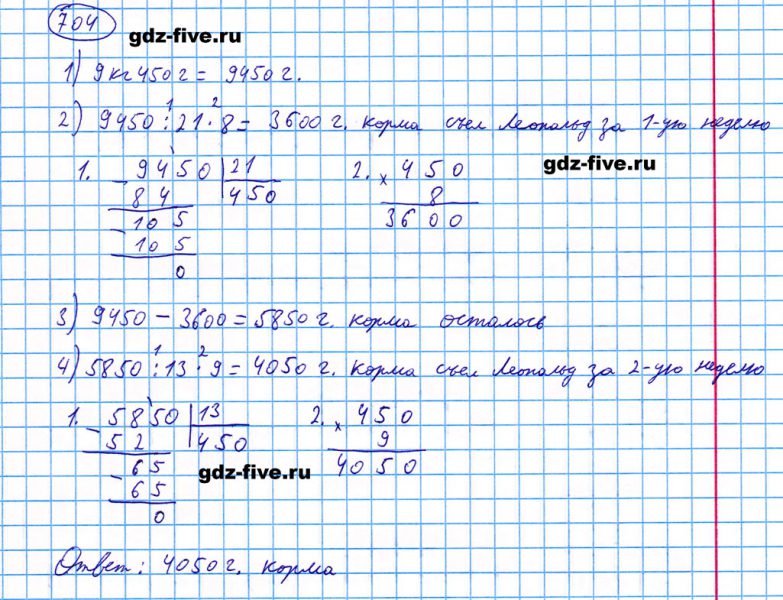 704
gdz-five.ru
1) 9 кг 450 г = 9450 г.
2) 9450 : 21 · 8 = 3600 г. корма съел Леопольд за 1-ую неделю
1 2
gdz-five.ru
1. 9450 | 21
- 84 | 450
- 105
105
0
2. × 450
8
3600
3) 9450 – 3600 = 5850 г. корма осталось
4) 5850 : 13 · 9 = 4050 г. корма съел Леопольд за 2-ую неделю
1 2
1. 5850 | 13
- 52 | 450
- 65
65
0
2. × 450
9
4050
gdz-five.ru
Ответ: 4050 г. корма